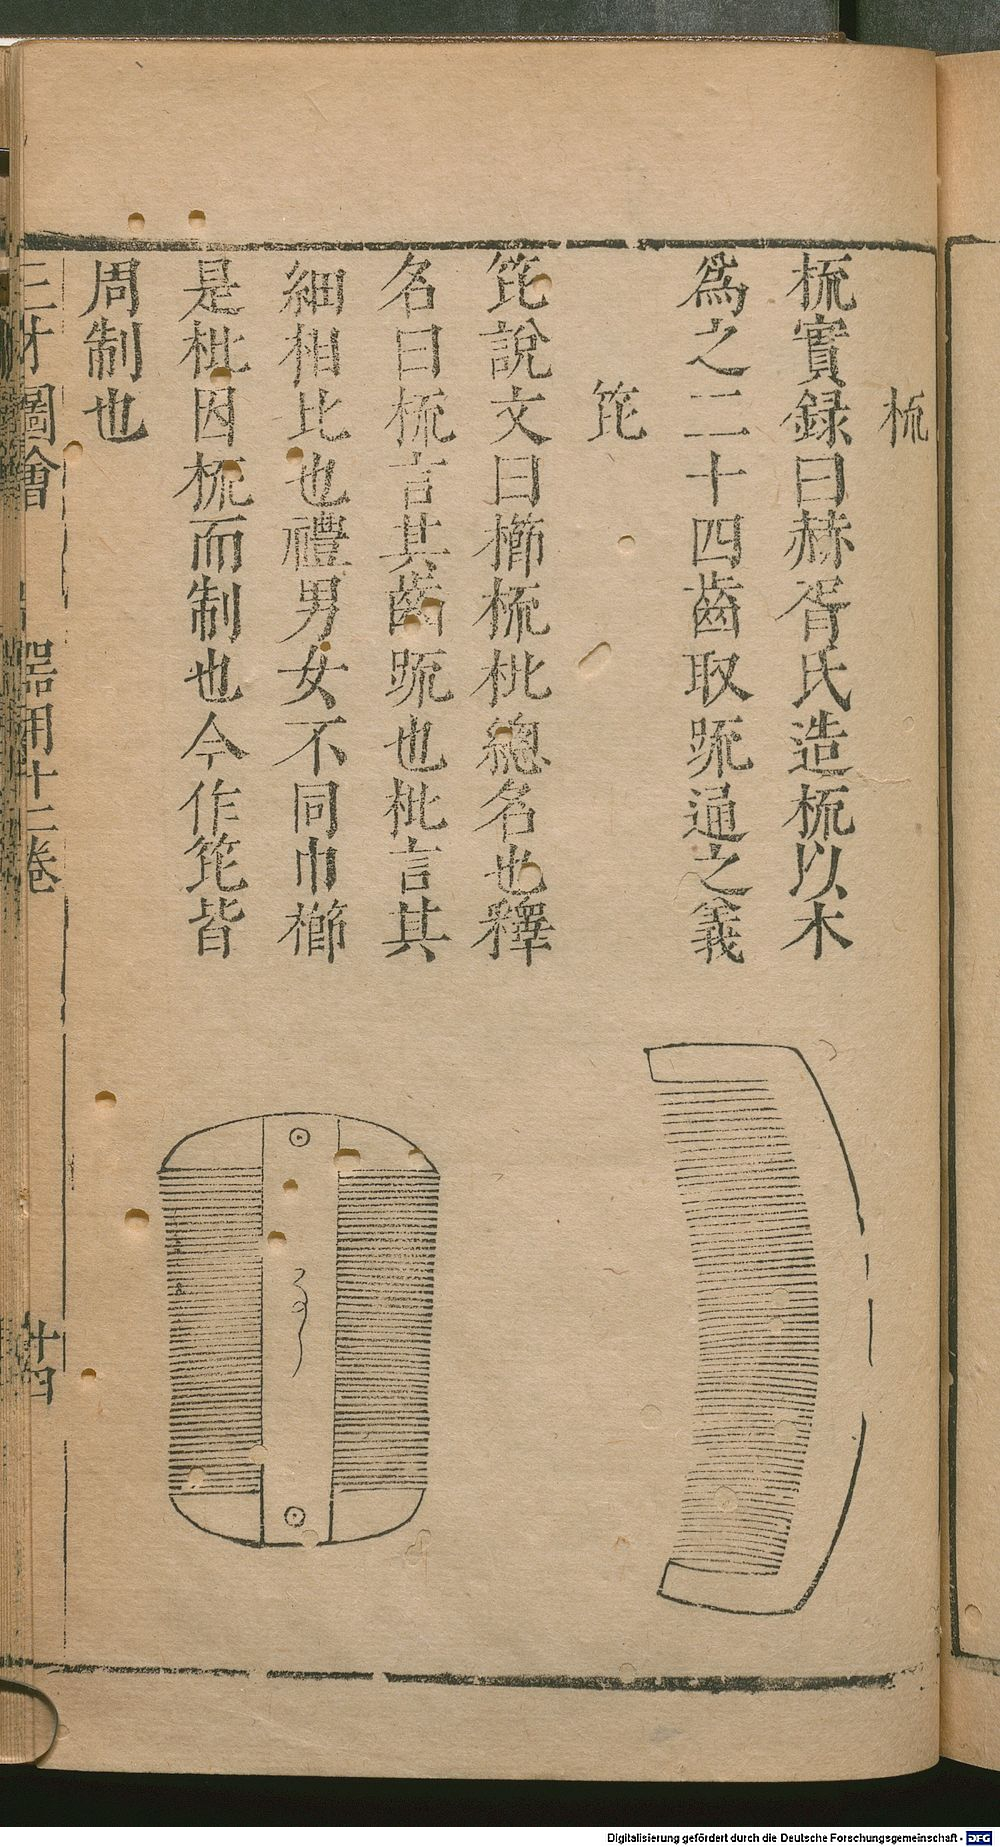 梳
梳實録曰赫胥氏造梳以木
爲之二十四齒取疏通之義
笓
笓說文曰櫛梳枇總名也釋
名曰梳言其齒疏也枇言其
細相比也禮男女不同巾櫛
是枇因梳而制也今作笓皆
周制也
三才圖會 器用十二卷 廿四
Digitalisierung gefördert durch die Deutsche Forschungsgemeinschaft - DFG